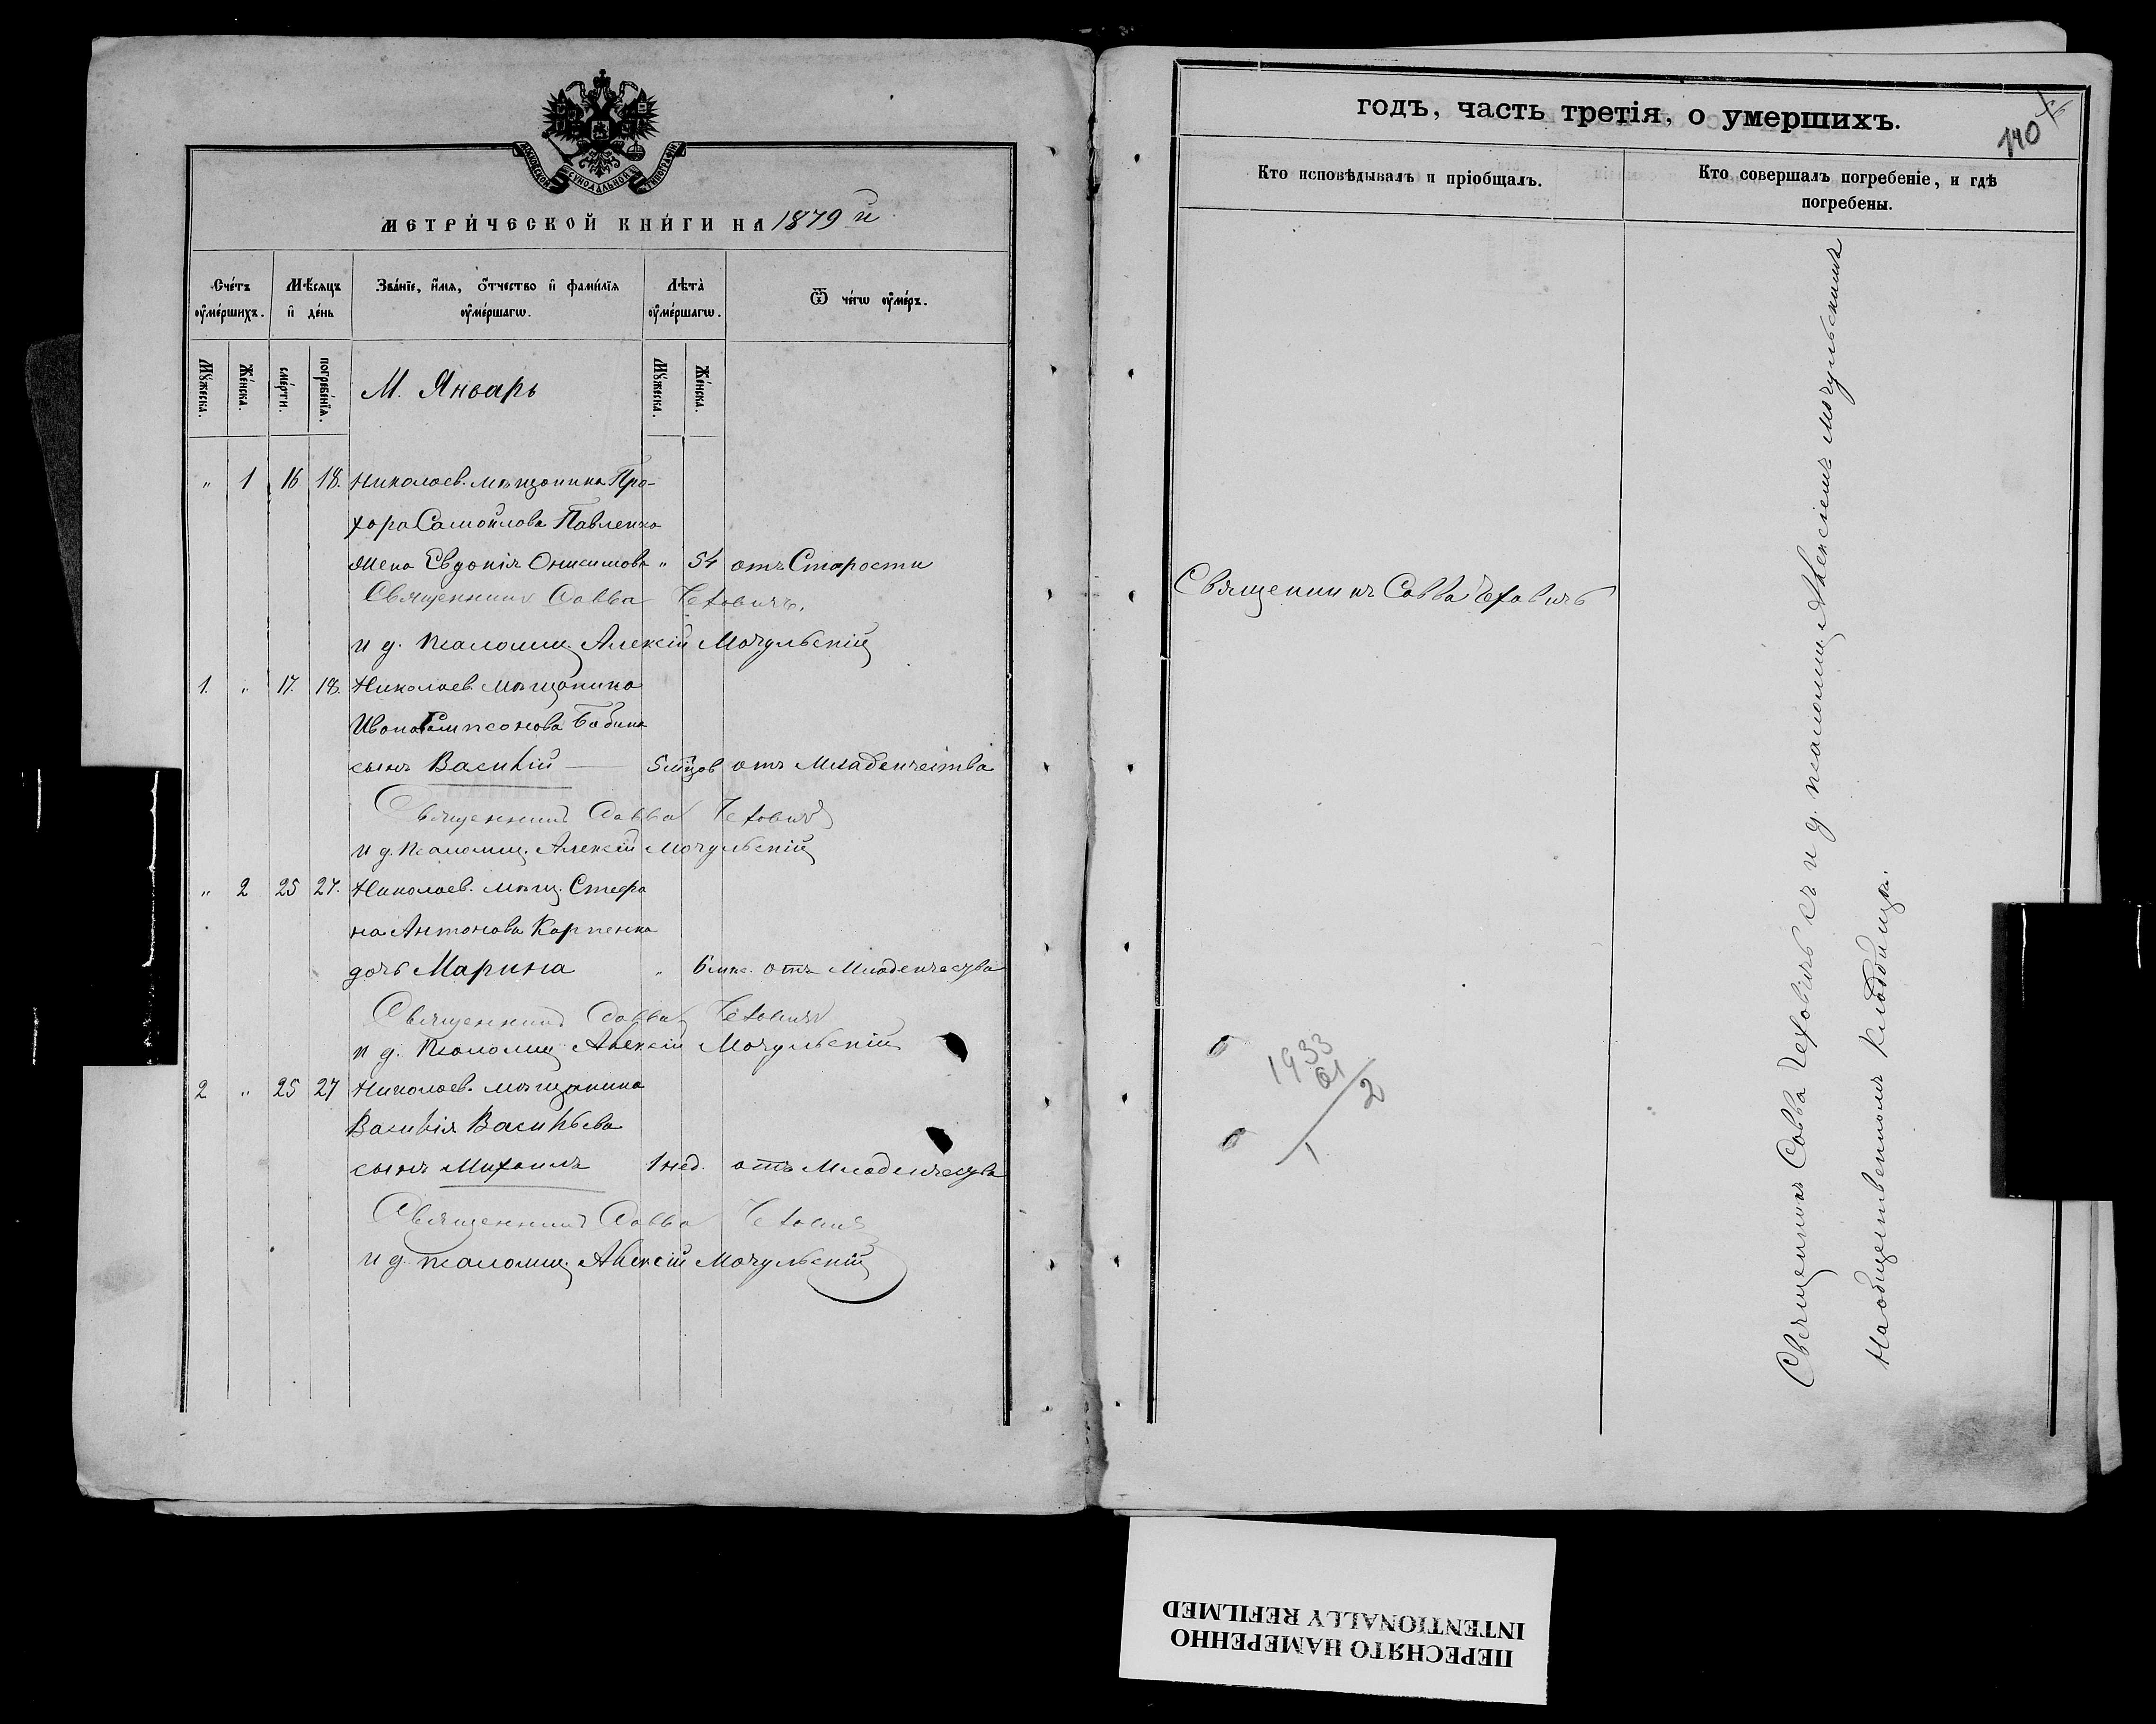 МОСКОВСКОЙ СУНОДАЛЬНОЙ ТИПОГРАФІИ
МЕТРИ́ЧЕСКОЙ КНИ́ГИ НА 1879 й
Сче́тъ ᲂу҆ме́ршихъ.
Мѣ́сяцъ и҆ де́нь
Зва́нїе, и҆́мѧ, ѻ҆́тчество и҆ фами́лїѧ ᲂу҆ме́ршагѡ.
Лѣта̀ ᲂу҆ме́ршагѡ.
Ѿ чегѡ̀ ᲂу҆ме́ръ.
Мꙋ́жеска.
Же́нска.
сме́рти.
погребе́нїѧ.
М. Январь
Мꙋ́жеска.
Же́нска.
" 1 16 18. Николаев. мѣщанина Про-
хора Самойлова Павленко
жена Евдокія Онисимова " 54 отъ Старости
Священникъ Савва Чеховичъ.
и д. псаломщ. Алексій Мочульскій
1. " 17. 18. Николаев. мѣщанина
Ивана Сампсонова
сынъ Василій — 5 мѣцов отъ Младенчества
Священникъ Савва Чеховичъ
и д. псаломщ. Алексій Мочульскій
" 2 25 27. Николаев. мѣщ. Стефа
на Антонова Карпенка
дочь Марина " 6 мис. отъ Младенчества
Священникъ Савва Чеховичъ
и д. псаломщ. Алексій Мочульскій
2 " 25 27 Николаев. мѣщанина
Василія Васильева
сынъ Михаилъ 1 нед. отъ Младенчества
Священникъ Савва Чеховичъ
и д. псаломщ. Алексій Мочульскій
годъ, часть третія, о умершихъ.
140
Кто исповѣдывалъ и пріобщалъ.
Кто совершалъ погребеніе, и гдѣ погребены.
Священникъ Савва Чеховичъ
Священникъ Савва Чеховичъ съ и д. псаломщ. Алексіемъ Мочульскимъ
На общественномъ кладбищѣ.
1933
01
2
1
ПЕРЕСНЯТО НАМЕРЕННО
INTENTIONALLY REFILMED